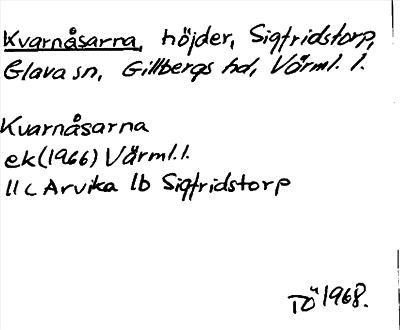 Kvarnåsarna, höjder, Sigfridstorp,
Glava sn, Gillbergs hd, Värml. l.
Kvarnåsarna
ek(1966) Värml.l.
11 c Arvika 1b Sigfridstorp
TÖ 1968.